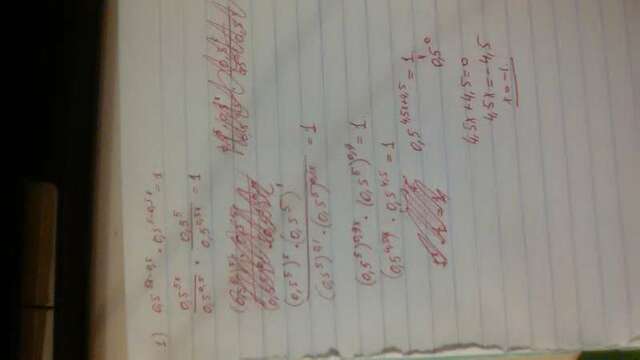 1) 0,5^{5x-0,5} · 0,5^{5-0,5x} = 1
\frac{0,5^{5x}}{0,5^{0,5}} · \frac{0,5^{5}}{0,5^{0,5x}} = 1
\frac{(0,5^{5})^{x} · (0,5^{5})^{1}}{(0,5^{5})^{0,1} · (0,5^{5})^{0,1x}} = 1
(0,5^{5})^{0,9x} · (0,5^{5})^{0,9} = 1
(0,5^{4,5x}) · 0,5^{4,5} = 1
0,5^{4,5x+4,5} = 1
0,5^{0}
4,5x + 4,5 = 0
4,5x = -4,5
x = -1